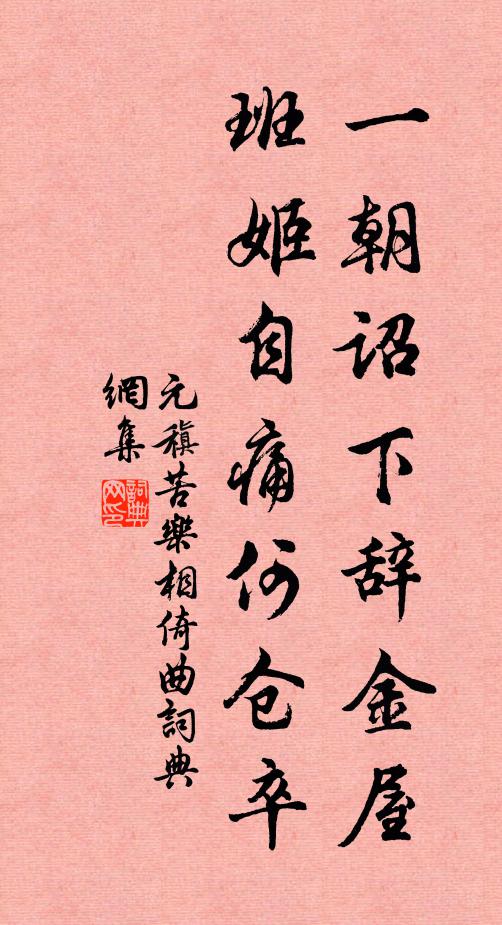 一朝诏下辞金屋
班姬自痛何仓卒
元稹苦樂相倚曲詞典
網集
詞典
网印